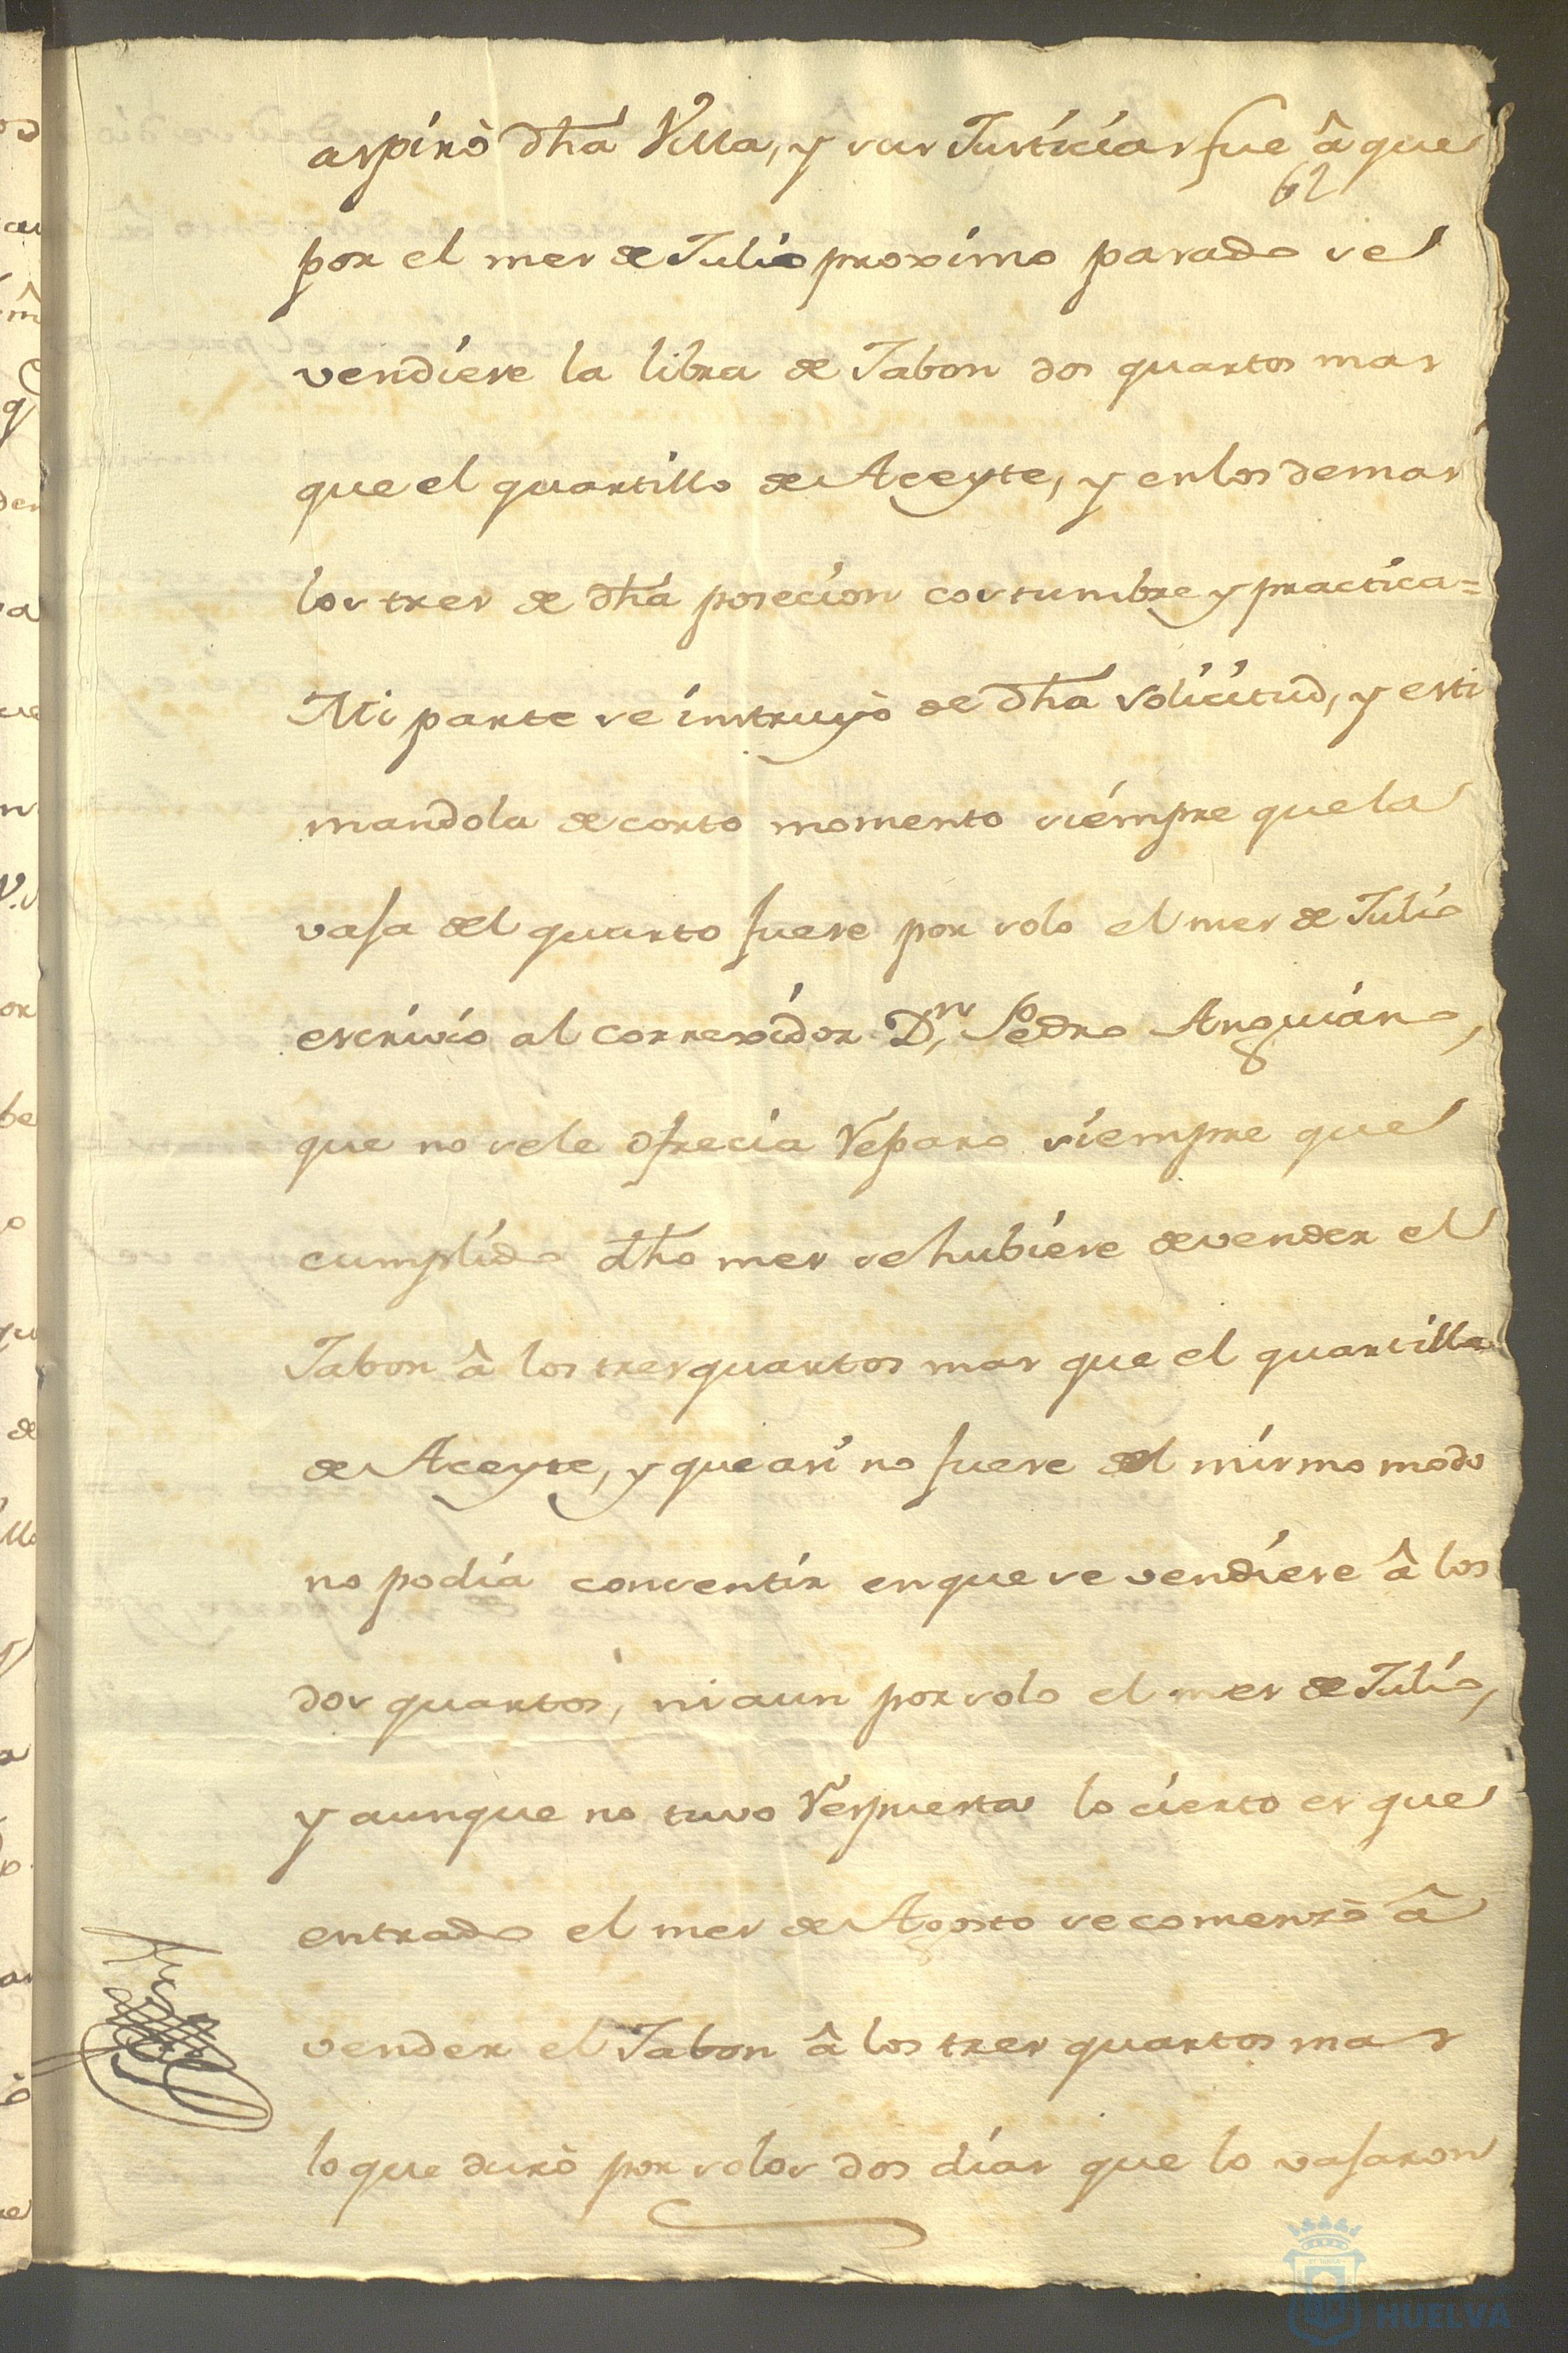 aspirò dha Villa, y sus Justicias fue â que
62
por el mes de Julio proximo pasado se
vendiese la libra de Jabon dos quartos mas
que el quartillo de Aceyte, y en los demas
los tres de dha posecion costumbre y practica=
Mi parte se instruyò de dha solicitud, y esti
mandola de corto momento siempre que la
vaja del quarto fuese por solo el mes de Julio
escrivio al correxidor Dn. Pedro Anguiano,
que no se le ofrecia reparo siempre que
cumplido dho mes se hubiese de vender el
Jabon â los tres quartos mas que el quartillo
de Aceyte, y que asi no fuese del mismo modo
no podia consentir en que se vendiese â los
dos quartos, ni aun por solo el mes de Julio,
y aunque no tuvo respuesta lo cierto es que
entrado el mes de Agosto se comenzò â
vender el Jabon â los tres quartos mas
lo que durò por solos dos dias que lo vajaron
HUELVA